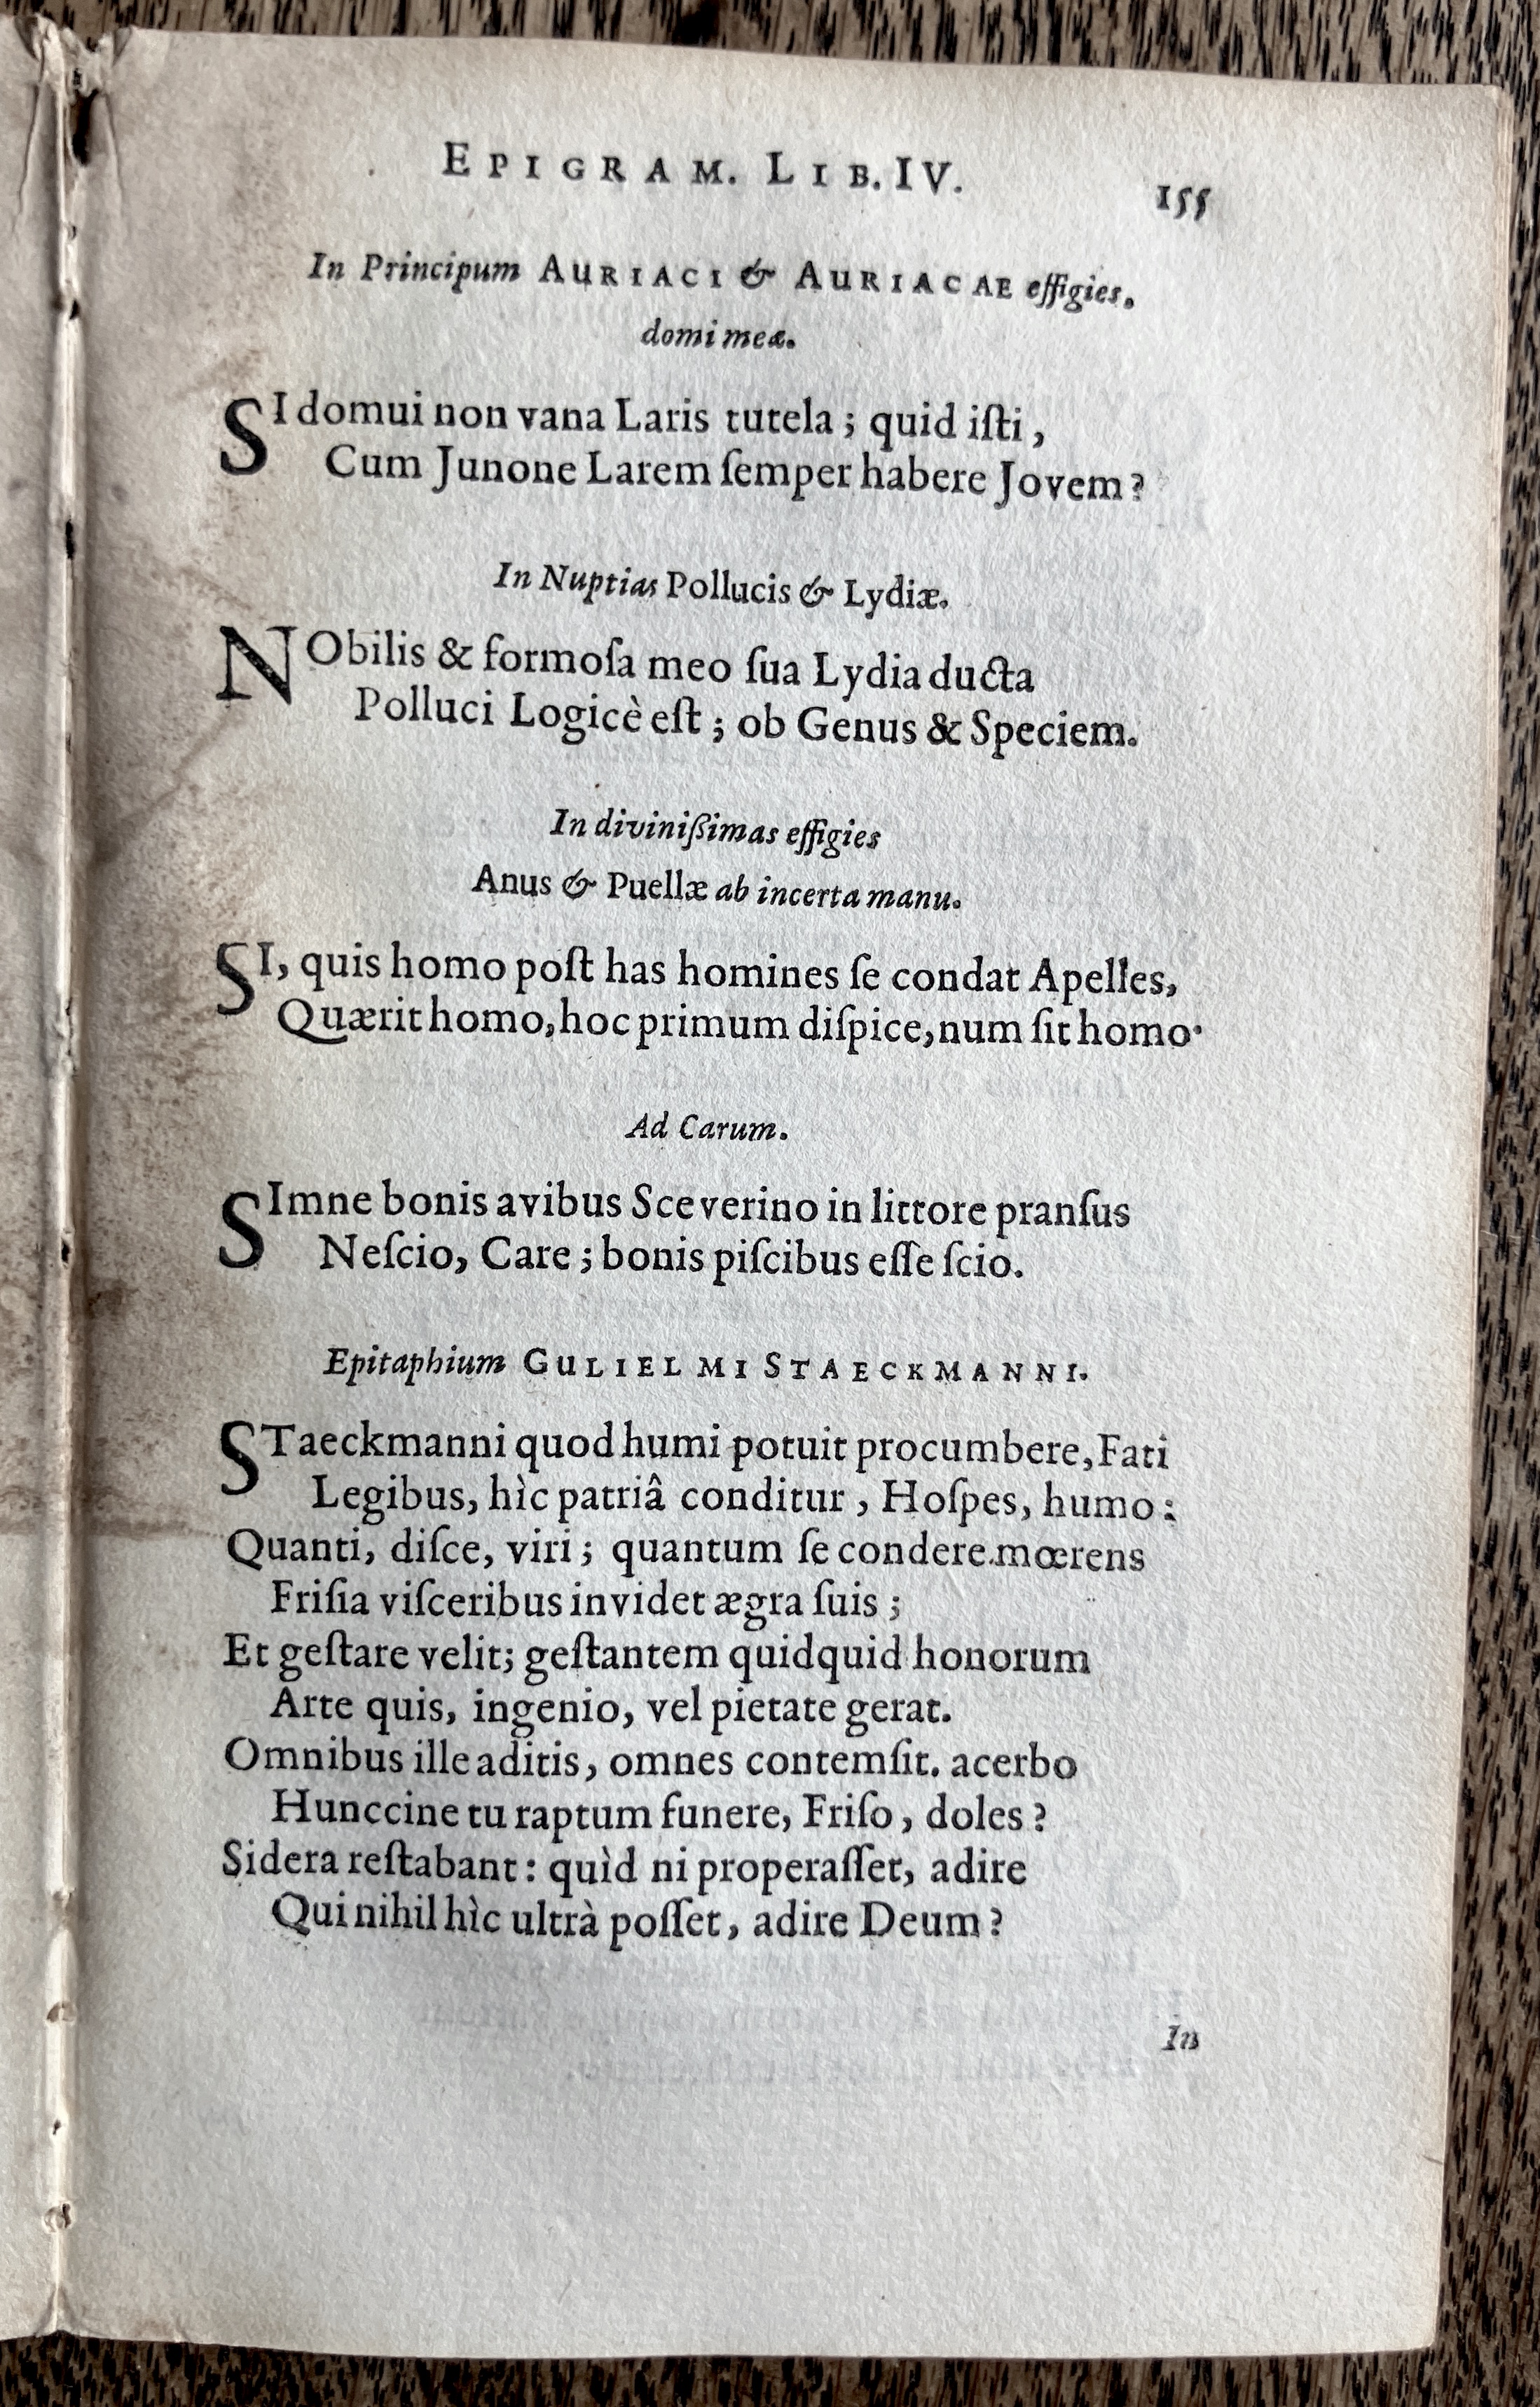 EPIGRAM. LIB. IV. 155
In Principum AURIACI & AURIACAE effigies.
domi meæ.
SI domui non vana Laris tutela; quid iſti,
Cum Junone Larem ſemper habere Jovem?
In Nuptias Pollucis & Lydiæ.
NObilis & formoſa meo ſua Lydia ducta
Polluci Logicè eſt; ob Genus & Speciem.
In diviniſſimas effigies
Anus & Puellæ ab incerta manu.
SI, quis homo poſt has homines ſe condat Apelles,
Quærit homo, hoc primum diſpice, num ſit homo.
Ad Carum.
SImne bonis avibus Sceverino in littore pranſus
Neſcio, Care; bonis piſcibus eſſe ſcio.
Epitaphium GULIELMI STAECKMANNI.
STaeckmanni quod humi potuit procumbere, Fati
Legibus, hìc patriâ conditur, Hoſpes, humo:
Quanti, diſce, viri; quantum ſe condere mœrens
Friſia viſceribus invidet ægra ſuis;
Et geſtare velit; geſtantem quidquid honorum
Arte quis, ingenio, vel pietate gerat.
Omnibus ille aditis, omnes contemſit. acerbo
Hunccine tu raptum funere, Friſo, doles?
Sidera reſtabant: quìd ni properaſſet, adire
Qui nihil hìc ultrà poſſet, adire Deum?
In